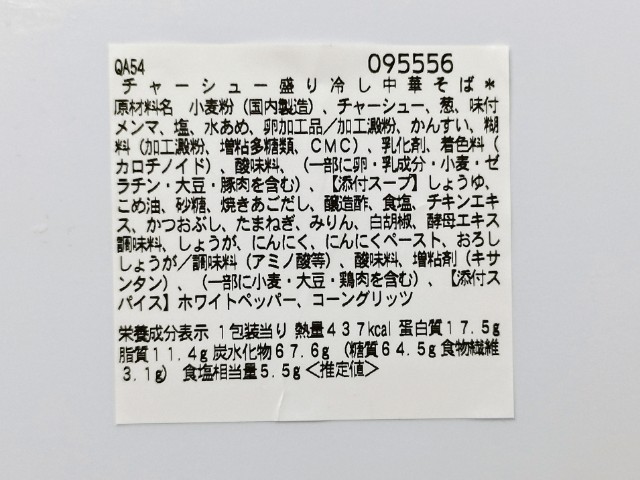 QA54 095556
チャーシュー盛り冷し中華そば*
原材料名 小麦粉(国内製造)、チャーシュー、葱、味付
メンマ、塩、水あめ、卵加工品/加工澱粉、かんすい、糊
料(加工澱粉、増粘多糖類、CMC)、乳化剤、着色料(
カロチノイド)、酸味料、(一部に卵・乳成分・小麦・ゼ
ラチン・大豆・豚肉を含む)、【添付スープ】しょうゆ、
こめ油、砂糖、焼きあごだし、醸造酢、食塩、チキンエキ
ス、かつおぶし、たまねぎ、みりん、白胡椒、酵母エキス
調味料、しょうが、にんにく、にんにくペースト、おろし
しょうが/調味料(アミノ酸等)、酸味料、増粘剤(キサ
ンタン)、(一部に小麦・大豆・鶏肉を含む)、【添付ス
パイス】ホワイトペッパー、コーングリッツ
栄養成分表示 1包装当り 熱量437kcal 蛋白質17.5g
脂質11.4g 炭水化物67.6g (糖質64.5g 食物繊維
3.1g) 食塩相当量5.5g<推定値>